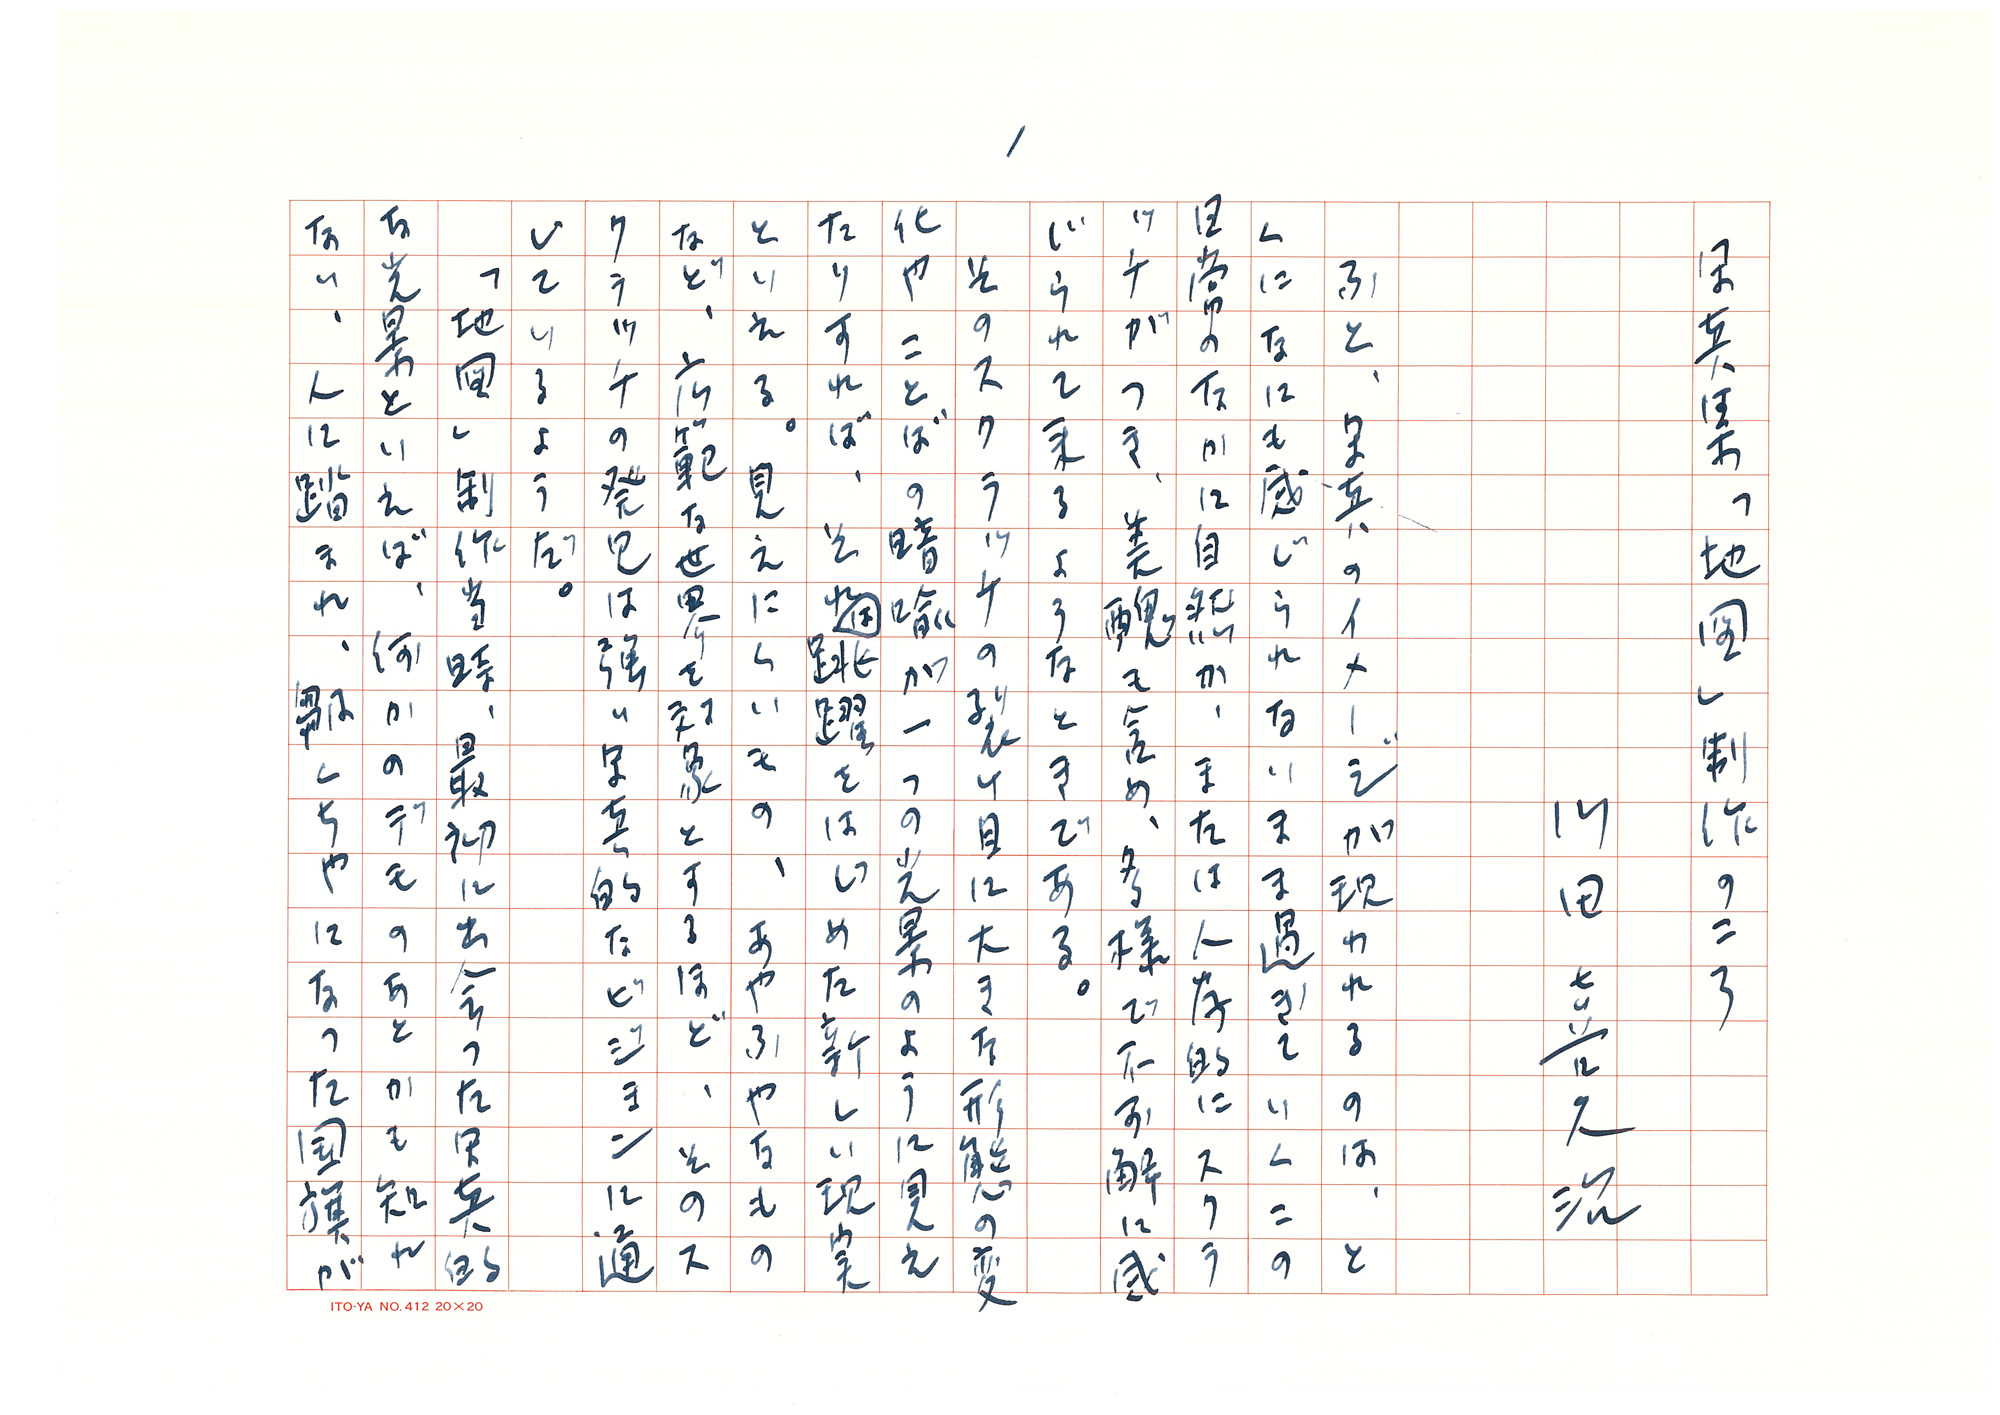 1
写真集「地図」制作のころ
川田喜久治
ふと、写真のイメージが現われるのは、と
くになにも感じられないまま過ぎていくこの
日常のなかに自然か、または人為的にスクラ
ッチがつき、美醜も含め、多様で不可解に感
じられて来るようなときである。
そのスクラッチの裂け目に大きな形態の変
化やことばの暗喩が一つの光景のように見え
たりすれば、それは跳躍をはじめた新しい現実
といえる。見えにくいもの、あやふやなもの
など、広範な世界を対象とするほど、そのス
クラッチの発見は強い写真的なビジョンに通
じているようだ。
「地図」制作当時、最初に出会った写真的
な光景といえば、何かのデモのあとかも知れ
ない、人に踏まれ、皺くちゃになった国旗が
ITO-YA NO. 412 20×20